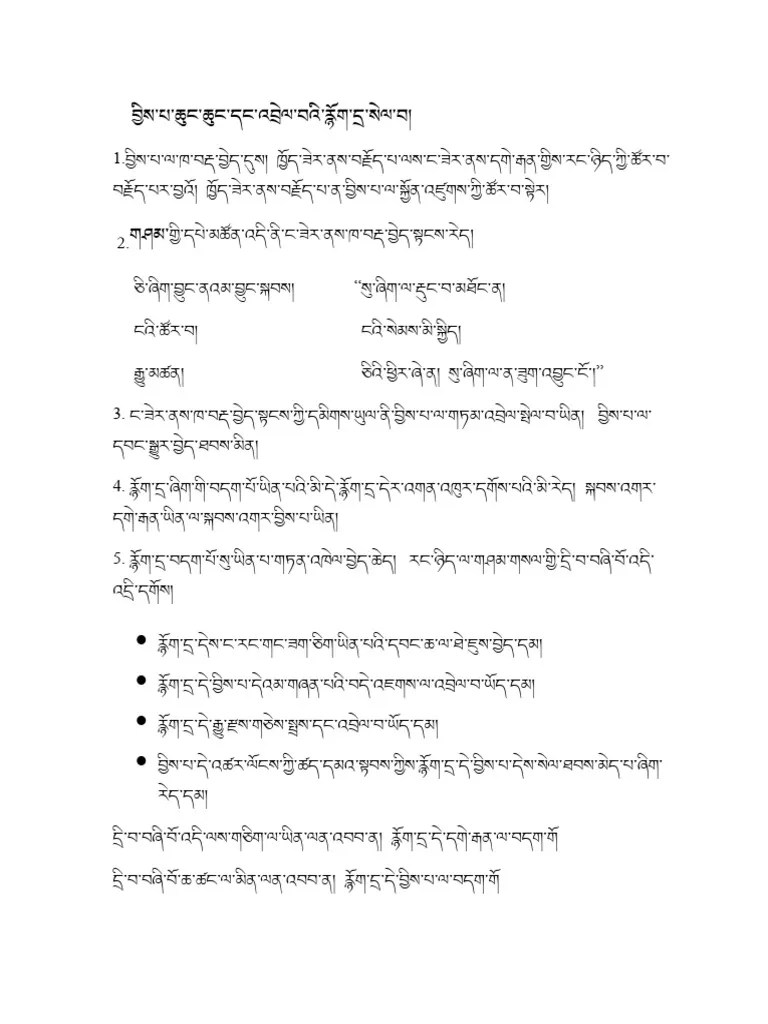 བྱིས་པ་ཆུང་ཆུང་དང་འབྲེལ་བའི་རྙོག་དྲ་སེལ་བ།
1.བྱིས་པ་ལ་ཁ་བརྡ་བྱེད་དུས། ཁྱོད་ཟེར་ནས་བརྗོད་པ་ལས་ང་ཟེར་ནས་དགེ་རྒན་གྱིས་རང་ཉིད་ཀྱི་ཚོར་བ་
བརྗོད་པར་བྱའོ། ཁྱོད་ཟེར་ནས་བརྗོད་པ་ན་བྱིས་པ་ལ་སྐྱོན་འཛུགས་ཀྱི་ཚོར་བ་སྟེར།
2.གཤམ་གྱི་དཔེ་མཚོན་འདི་ནི་ང་ཟེར་ནས་ཁ་བརྡ་བྱེད་སྟངས་རེད།
ཅི་ཞིག་བྱུང་ནའམ་བྱུང་སྐབས། “སུ་ཞིག་ལ་རྡུང་བ་མཐོང་ན།
ངའི་ཚོར་བ། ངའི་སེམས་མི་སྐྱིད།
རྒྱུ་མཚན། ཅིའི་ཕྱིར་ཞེ་ན། སུ་ཞིག་ལ་ན་ཟུག་འབྱུང་ངོ་།”
3. ང་ཟེར་ནས་ཁ་བརྡ་བྱེད་སྟངས་ཀྱི་དམིགས་ཡུལ་ནི་བྱིས་པ་ལ་གཏམ་འབྲེལ་སྤེལ་བ་ཡིན། བྱིས་པ་ལ་
དབང་སྒྱུར་བྱེད་ཐབས་མིན།
4. རྙོག་དྲ་ཞིག་གི་བདག་པོ་ཡིན་པའི་མི་དེ་རྙོག་དྲ་དེར་འགན་འཁུར་དགོས་པའི་མི་རེད། སྐབས་འགར་
དགེ་རྒན་ཡིན་ལ་སྐབས་འགར་བྱིས་པ་ཡིན།
5. རྙོག་དྲ་བདག་པོ་སུ་ཡིན་པ་གཏན་འཁེལ་བྱེད་ཆེད། རང་ཉིད་ལ་གཤམ་གསལ་གྱི་དྲི་བ་བཞི་པོ་འདི་
འདྲི་དགོས།
● རྙོག་དྲ་དེས་ང་རང་གང་ཟག་ཅིག་ཡིན་པའི་དབང་ཆ་ལ་ཐེ་ཇུས་བྱེད་དམ།
● རྙོག་དྲ་དེ་བྱིས་པ་དེའམ་གཞན་པའི་བདེ་འཇགས་ལ་འབྲེལ་བ་ཡོད་དམ།
● རྙོག་དྲ་དེ་རྒྱུ་རྫས་གཅེས་སྤྲས་དང་འབྲེལ་བ་ཡོད་དམ།
● བྱིས་པ་དེ་འཚར་ལོངས་ཀྱི་ཚད་དམའ་སྟབས་ཀྱིས་རྙོག་དྲ་དེ་བྱིས་པ་དེས་སེལ་ཐབས་མེད་པ་ཞིག་
རེད་དམ།
དྲི་བ་བཞི་པོ་འདི་ལས་གཅིག་ལ་ཡིན་ལན་འབབ་ན། རྙོག་དྲ་དེ་དགེ་རྒན་ལ་བདག་གོ
དྲི་བ་བཞི་པོ་ཆ་ཚང་ལ་མིན་ལན་འབབ་ན། རྙོག་དྲ་དེ་བྱིས་པ་ལ་བདག་གོ